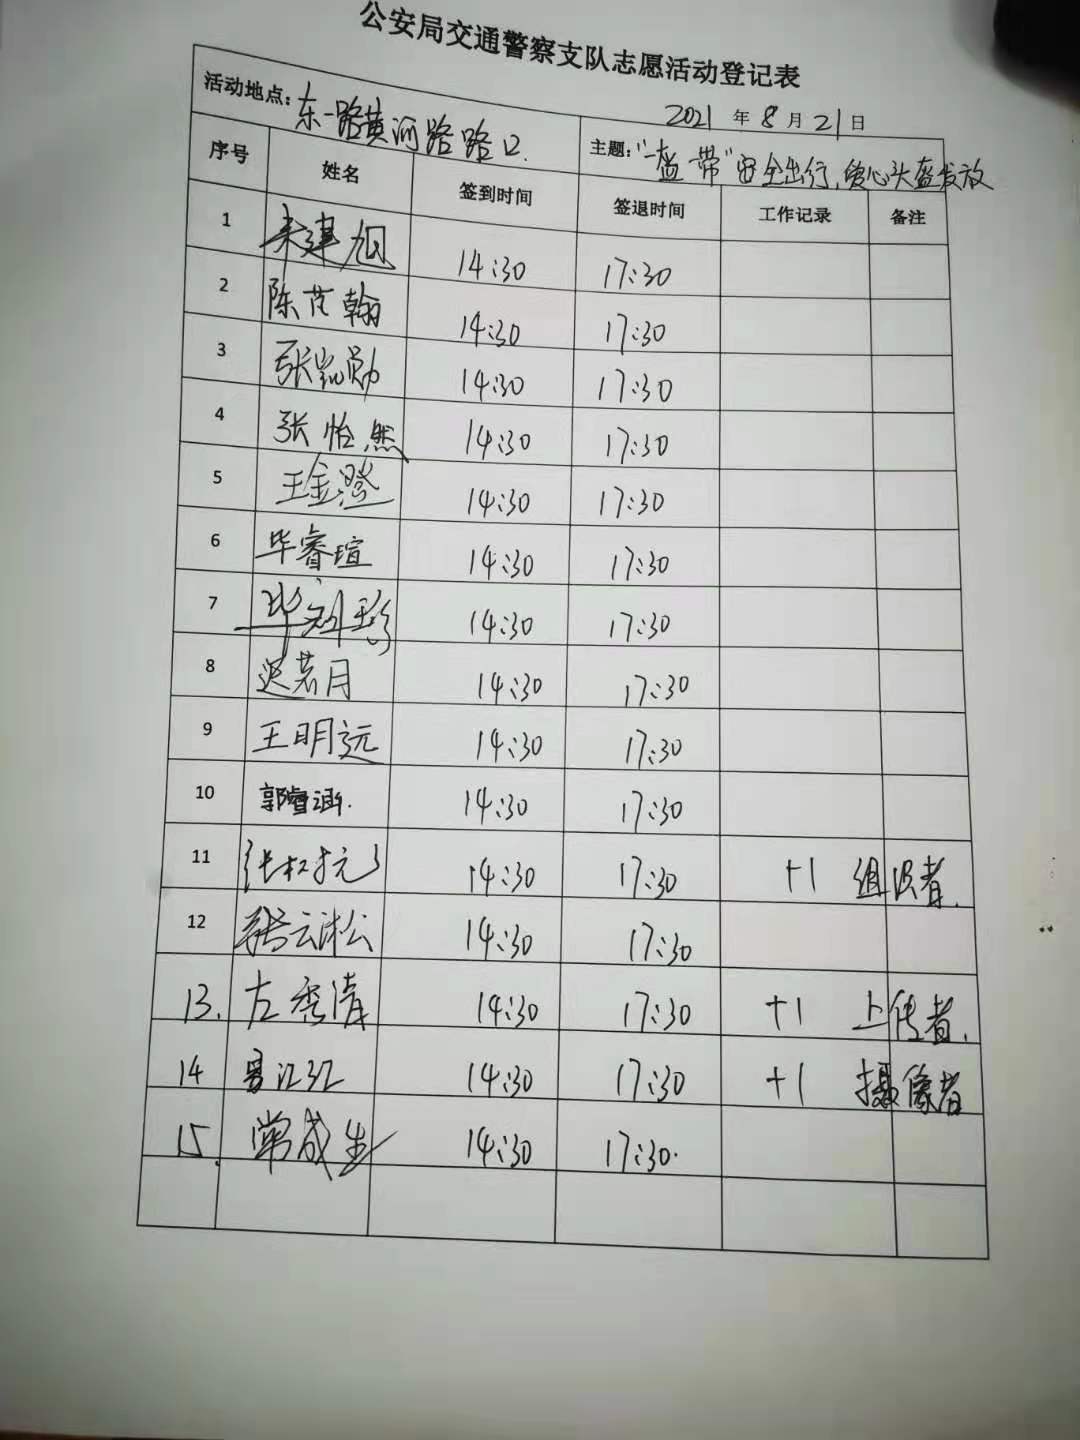 公安局交通警察支队志愿活动登记表
2021 年 8 月 21 日
活动地点: 东一路黄河路路口.
主题: "一盔一带"安全出行,爱心头盔发放
序号 姓名 签到时间 签退时间 工作记录 备注
1 建旭 14:30 17:30
2 陈艺翰 14:30 17:30
3 张凯勋 14:30 17:30
4 张怡然 14:30 17:30
5 王金澄 14:30 17:30
6 毕睿瑄 14:30 17:30
7 毕 14:30 17:30
8 迟若月 14:30 17:30
9 王明远 14:30 17:30
10 郭睿涵. 14:30 17:30
11 张 14:30 17:30 +1 组织者.
12 云淞 14:30 17:30
13. 左秀清 14:30 17:30 +1 上传者.
14 14:30 17:30 +1 摄像者
15. 常成生 14:30 17:30.